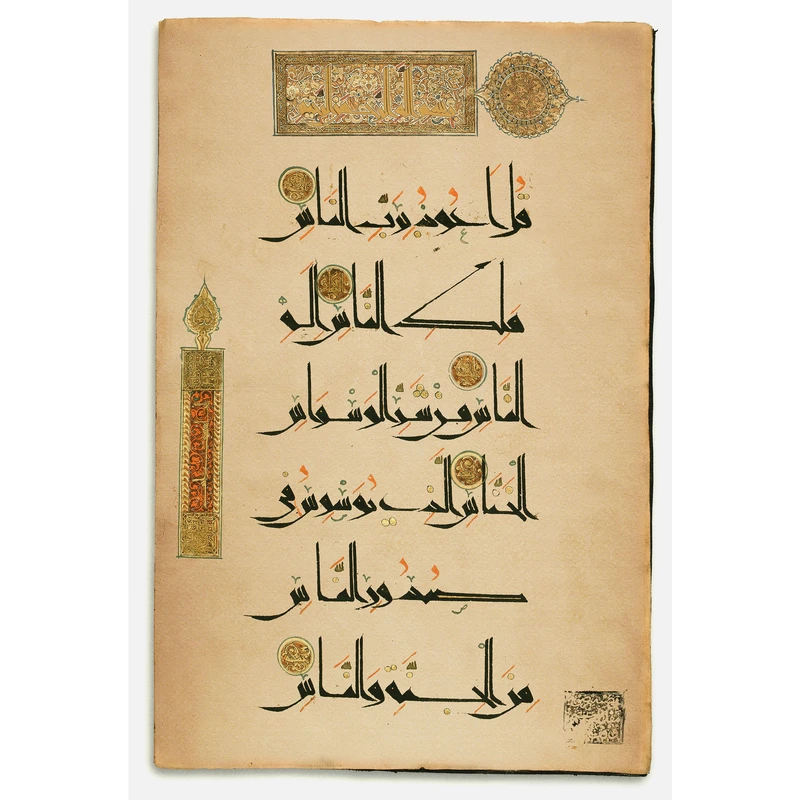 قُل اَعُوذُ بِرَبِّ النَّاسِ
مَلِكِ النَّاسِ اِلَهِ
النَّاسِ مِنْ شَرِّ الْوَسْوَاسِ
الْخَنَّاسِ الَّذِي يُوَسْوِسُ فِي
صُدُورِ النَّاسِ
مِنَ الْجِنَّةِ وَالنَّاسِ